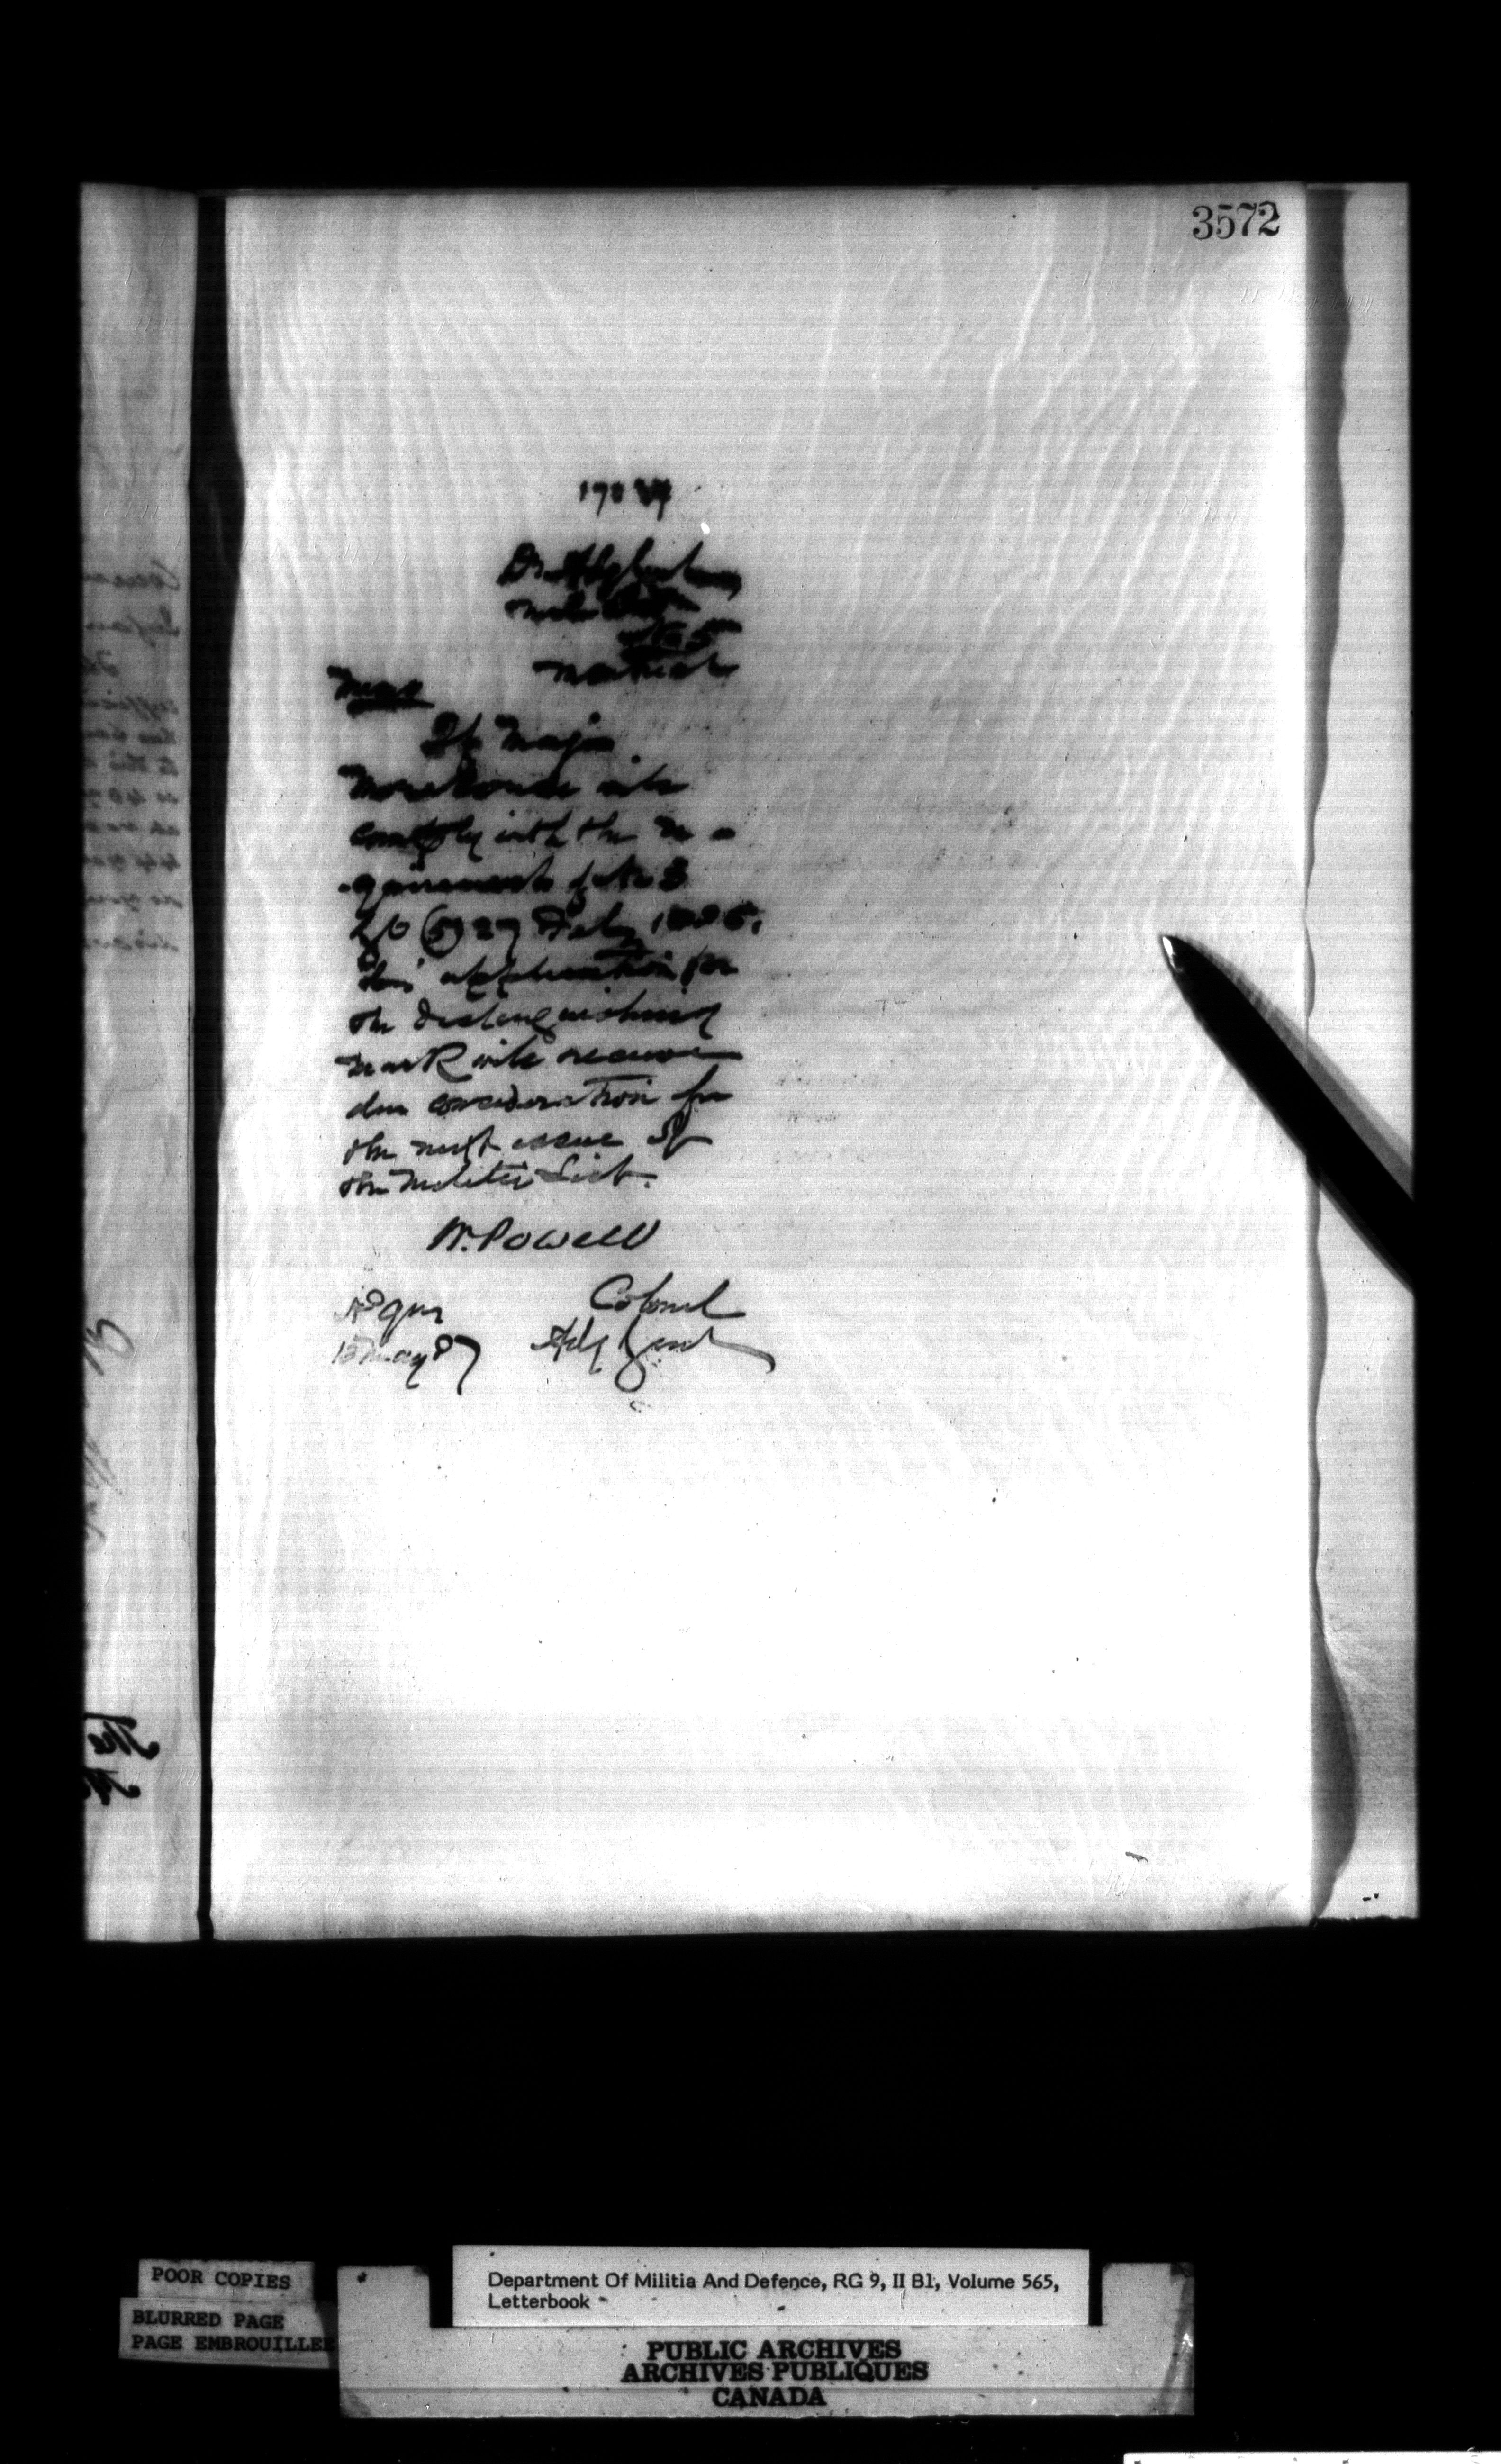 3572
Memo
If Major
Morehouse will
comply with the re-
-quirements of No 3
GO (5) 27 Feby 1885.
his application for
the distinguishing
mark will receive
due consideration for
the next issue of
the Militia List.
W. Powell
Colonel
Adj Genl
HdQrs
13 May 87
POOR COPIES
BLURRED PAGE
PAGE EMBROUILLEE
Department Of Militia And Defence, RG 9, II B1, Volume 565,
Letterbook
PUBLIC ARCHIVES
ARCHIVES PUBLIQUES
CANADA